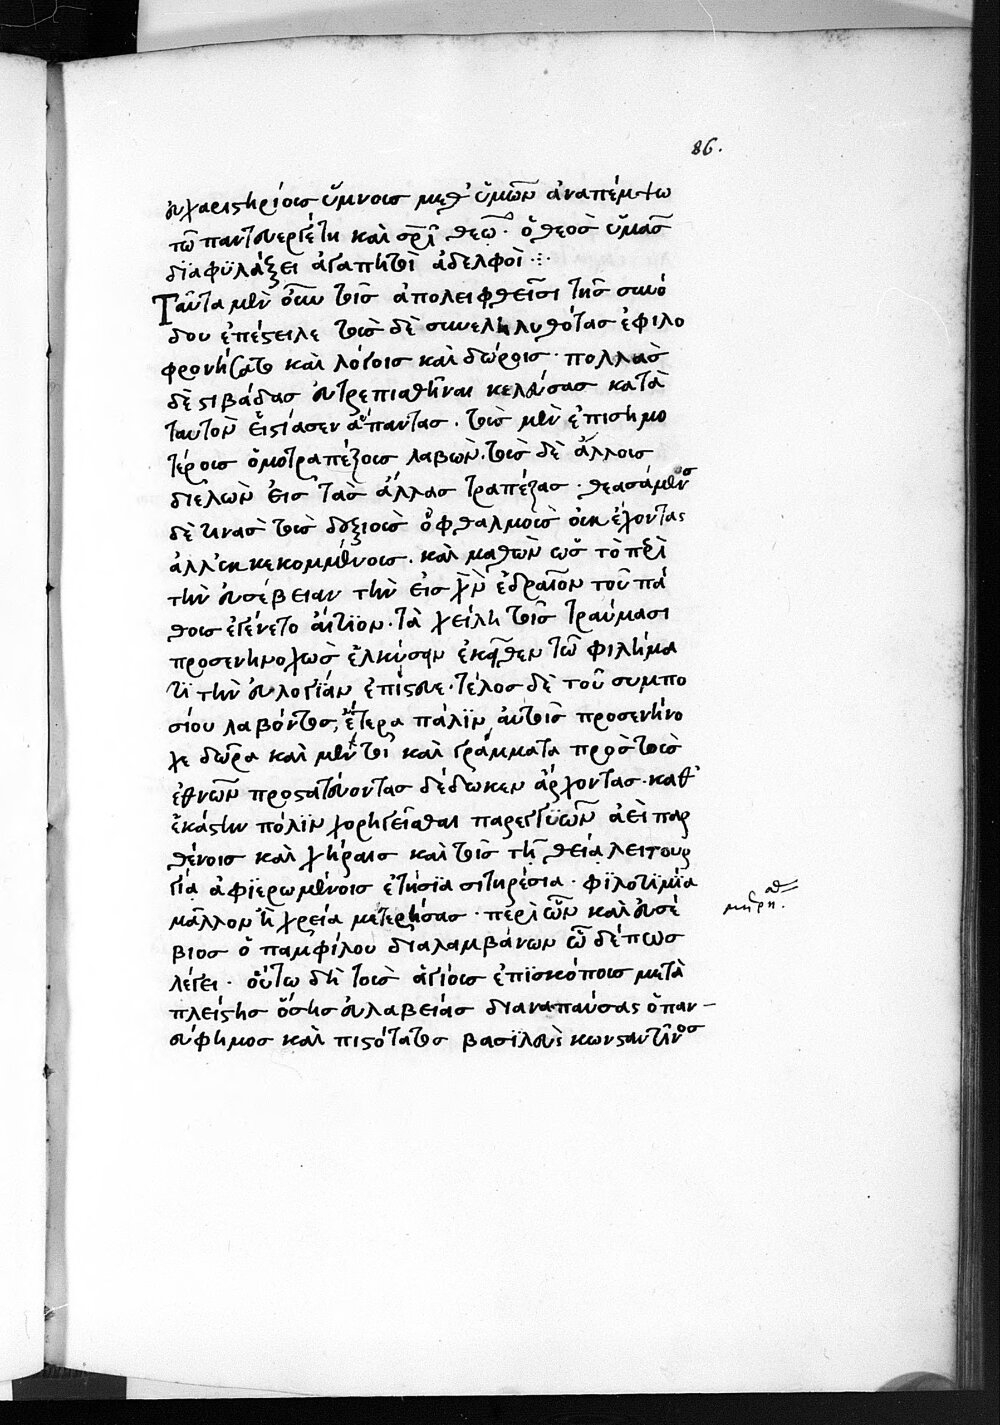 86.
εὐχαριστηρίοις ὕμνοις μεθ' ὑμῶν ἀναπέμπω
τῶ παντευεργέτη καὶ σρῖ θεῶ· ὁ θεὸς ὑμᾶς
διαφυλάξει ἀγαπητοὶ ἀδελφοὶ
Ταῦτα μὲν οὖν τοῖς ἀπολειφθεῖσι τῆς συνό
δου ἐπέστειλε τοὺς δὲ συνεληλυθότας ἐφιλο
φρονήσατο καὶ λόγοις καὶ δώροις· πολλὰς
δὲ στιβάδας εὐτρεπισθῆναι κελεύσας κατὰ
ταυτὸν εἱστίασεν ἅπαντας· τοὺς μὲν ἐπισημο
τέροις ὁμοτραπέζοις λαβὼν· τοὺς δὲ ἄλλοις
διελὼν εἰς τὰς ἄλλας τραπέζας· θεασάμενος
δὲ τινας τοὺς δεξιοὺς ὀφθαλμοὺς οὐκ ἔχοντας
ἀλλ' ἐκκεκομμένοις· καὶ μαθὼν ὡς τὸ περὶ
τὴν εὐσέβειαν τὴν εἰς χν ἑδραῖον τοῦ πά
θοις ἐγένετο αἴτιον· τὰ χείλη τοῖς τραύμασι
προσενηνοχὼς ἑλκύσην ἐκεῖθεν τῶ φιλήμα
τι τὴν εὐλογίαν ἐπίστευε· τέλος δὲ τοῦ συμπο
σίου λαβόντος, ἕτερα πάλιν αὐτοῖς προσενήνο
χε δῶρα καὶ μέντοι καὶ γράμματα πρὸς τοὺς
ἐθνῶν προστατεύοντας δέδωκεν ἄρχοντας· καθ'
ἑκάστην πόλιν χορηγεῖσθαι παρεγγυῶν ἀεὶ παρ
θένοις καὶ χήραις καὶ τοῖς τῆ θεία λειτουρ
γία ἀφιερωμένοις ἐτήσια σιτηρέσια· φιλοτιμία
μᾶλλον ἢ χρεία μετρήσας· περὶ ὧν καὶ εὐσέ
βιος ὁ παμφίλου διαλαμβάνων ὧδέ πως
λέγει· οὕτω δὴ τοὺς ἁγίους ἐπισκόποις μετὰ
πλείστης ὅσης εὐλαβείας διαναπαύσας ὁ παν-
εύφημος καὶ πιστότατος βασιλεὺς κωνσταντῖνος